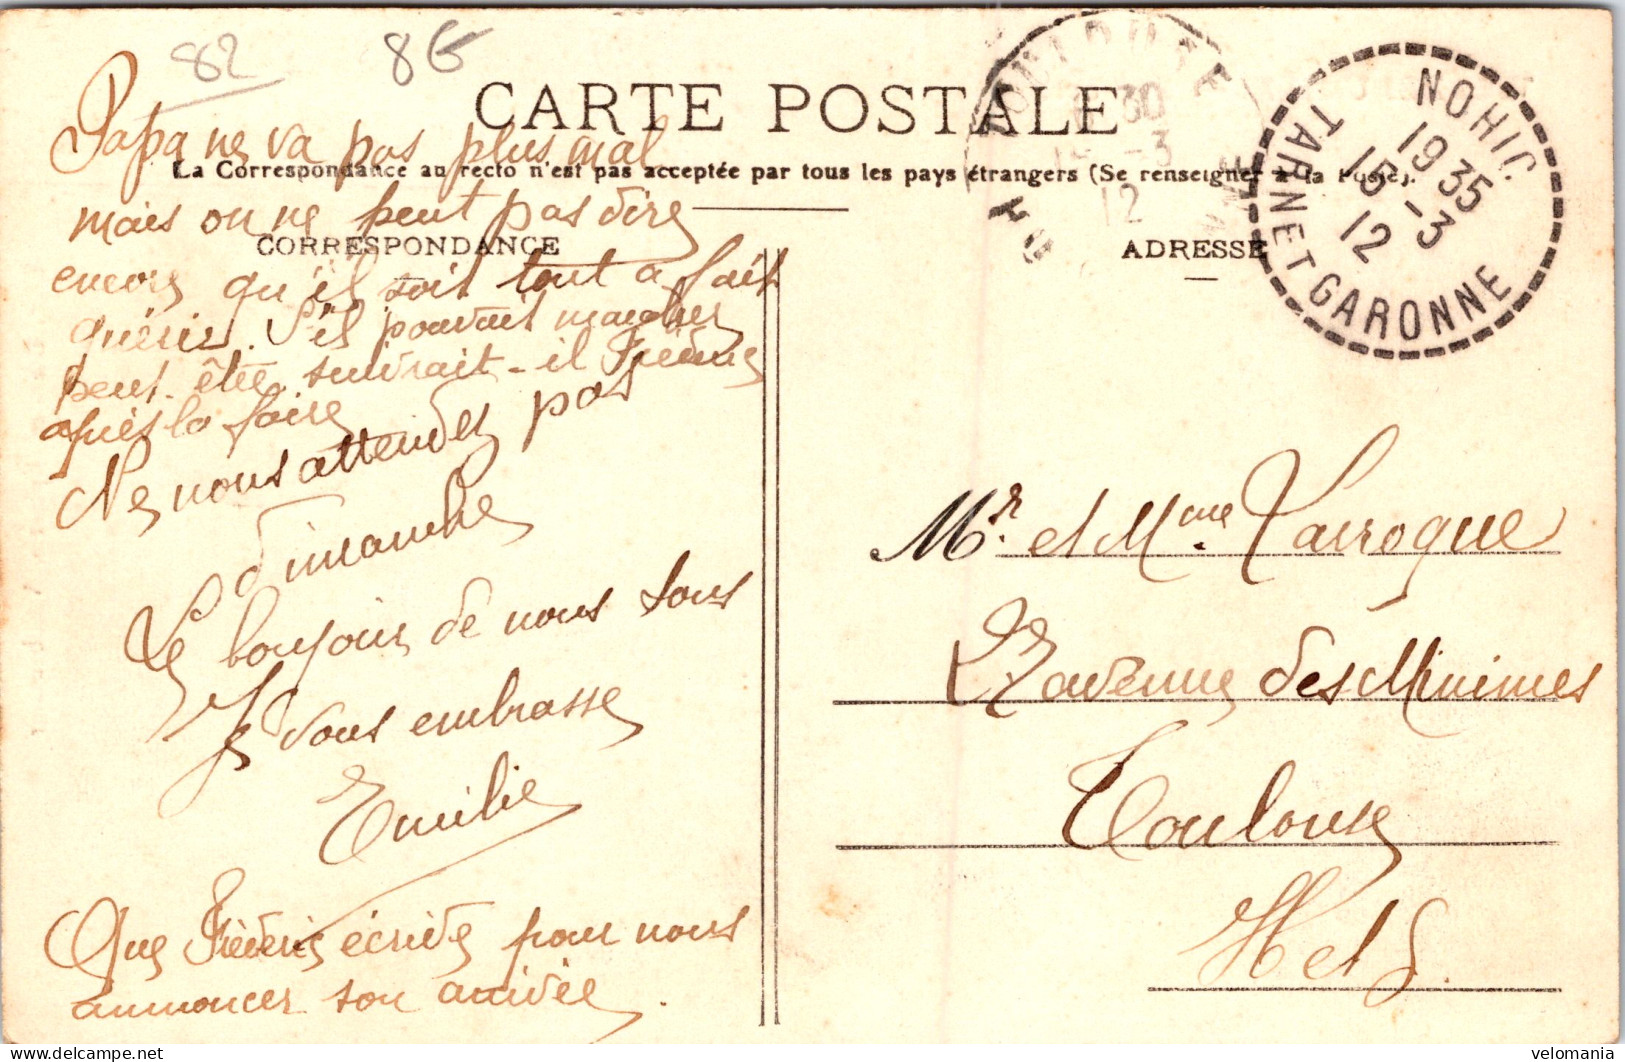 82
86
CARTE POSTALE
La Correspondance au recto n'est pas acceptée par tous les pays étrangers (Se renseigner à la Poste).
CORRESPONDANCE
ADRESSE
Papa ne va pas plus mal
mais on ne peut pas dire
encore qu'il soit tout a fait
guérir. S'il pouvait marcher
peut-être suivrait-il
après la foire
Ne nous attendez pas
dimanche
Le bonjour de nous tous
Je vous embrasse
Emilie
Que écrive pour nous
annoncer son arrivée.
NOHIC.
1935
15-3
12
TARN ET GARONNE
30
-3
12
Mr. et Mme. Larroque
avenue des Minimes
Toulouse
Hte G.
velomania